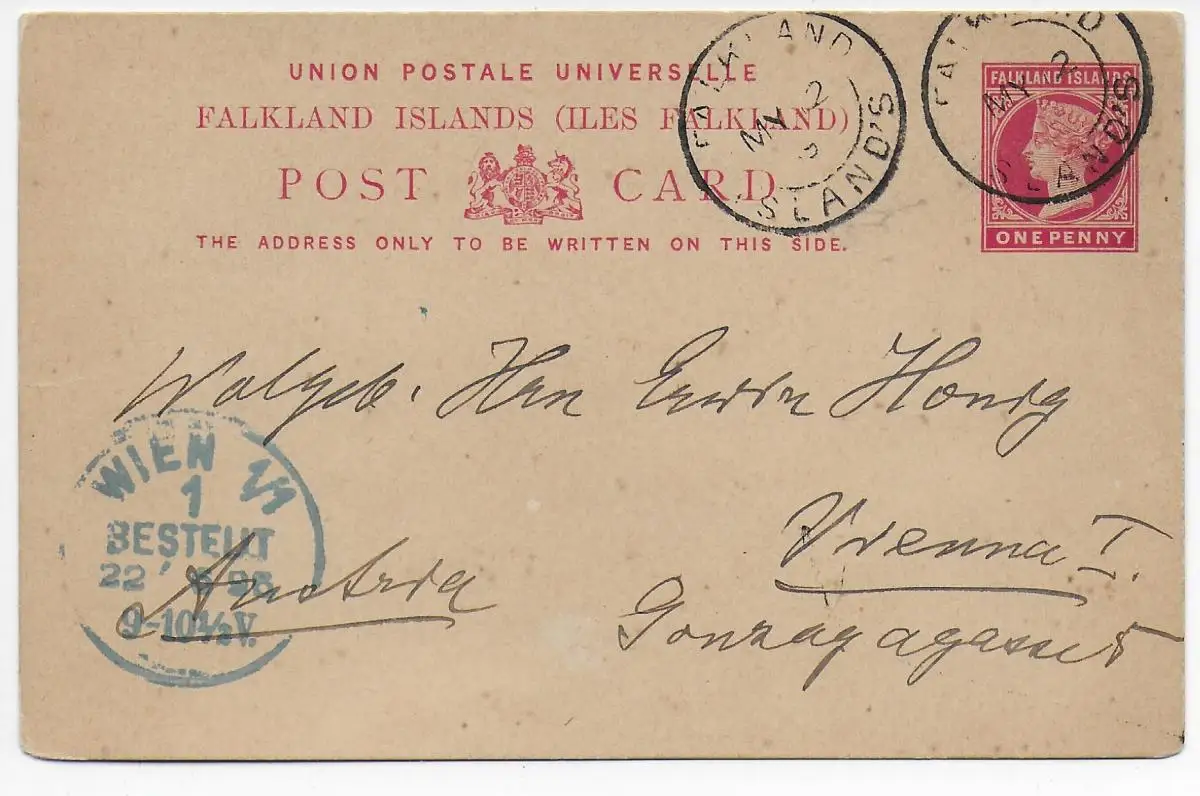 UNION POSTALE UNIVERSELLE
FALKLAND ISLANDS (ILES FALKLAND)
POST CARD
THE ADDRESS ONLY TO BE WRITTEN ON THIS SIDE.
FALKLAND
MY 2
ISLAND'S
FALKLAND
MY 2
ISLAND'S
FALKLAND ISLANDS
ONE PENNY
Wolgeb. Herrn Erwin Honig
Vienna I.
Gonzagagasse 5
Austria
WIEN 1/1
1
BESTELLT
22
9-10½V.